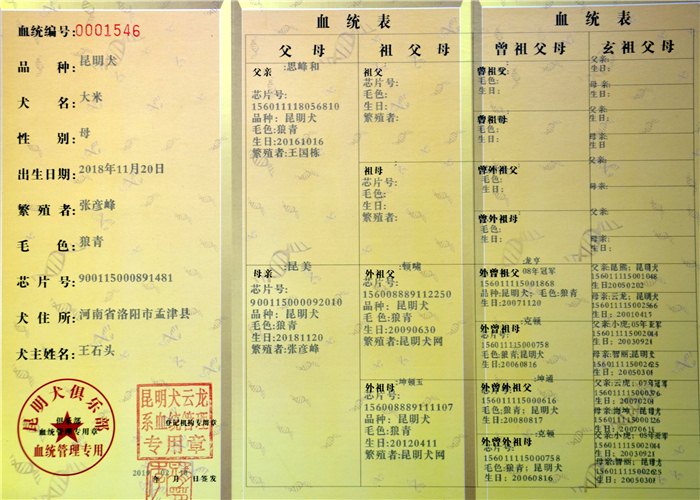 血统编号:0001546
品 种: 昆明犬
犬 名: 大米
性 别: 母
出生日期: 2018年11月20日
繁 殖 者: 张彦峰
毛 色: 狼青
芯 片 号: 900115000891481
犬 住 所: 河南省洛阳市孟津县
犬主姓名: 王石头
昆明犬俱乐部
俱乐部
血统管理专用章
血统管理专用
昆明犬云龙
系血统管理
专用章
登记机构专用章
年 月 日签发
血 统 表
父 母
祖 父 母
父亲:恩峰和
芯片号:
156011118056810
品种: 昆明犬
毛色:狼青
生日:20161016
繁殖者:王国栋
祖父:
芯片号:
毛色:
生日:
繁殖者:
祖母:
芯片号:
毛色:
生日:
繁殖者:
母亲:昆美
芯片号:
900115000092010
品种: 昆明犬
毛色:狼青
生日:20181120
繁殖者:张彦峰
外祖父:顿啸
芯片号:
156008889112250
品种: 昆明犬
毛色:狼青
生日:20090630
繁殖者:昆明犬网
外祖母:坤顿玉
芯片号:
156008889111107
品种: 昆明犬
毛色:狼青
生日:20120411
繁殖者:昆明犬网
血 统 表
曾祖父母
玄祖父母
曾祖父:
毛色:
生日:
曾祖母:
毛色:
生日:
曾外祖父:
毛色:
生日:
曾外祖母:
毛色:
生日:
外曾祖父:龙亨
08年冠军
156011115001868
品种:昆明犬; 毛色:狼青
生日:20071120
外曾祖母:克顿
156011115000758
毛色:狼青;昆明犬
生日:20060816
外曾外祖父:坤通
156011115000616
毛色:狼青; 昆明犬
生日:20080817
曾外曾祖母:克顿
156011115000758
毛色:狼青; 昆明犬
生日: 20060816
父亲:
生日:
母亲:
生日:
父亲:
生日:
母亲:
生日:
父亲:
母亲:
父亲:
母亲:
生日:
父亲:昆熊; 昆明犬
156011115001048
生日:20050202
母亲:云龙; 昆明犬
生日:20010415
父亲:小虎;05年亚军
156011115000358
生日:20030921
母亲:智丽;昆明犬
父亲:云虎;
母亲:海坤; 昆明犬
父亲:小虎;05年亚军
生日: 20030921
母亲:智丽; 昆明犬
生日: 20050308